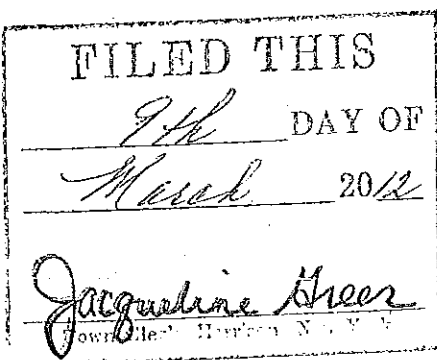 FILED THIS
9th DAY OF
March 2012
Jacqueline Greer
Town Clerk Harrison New York